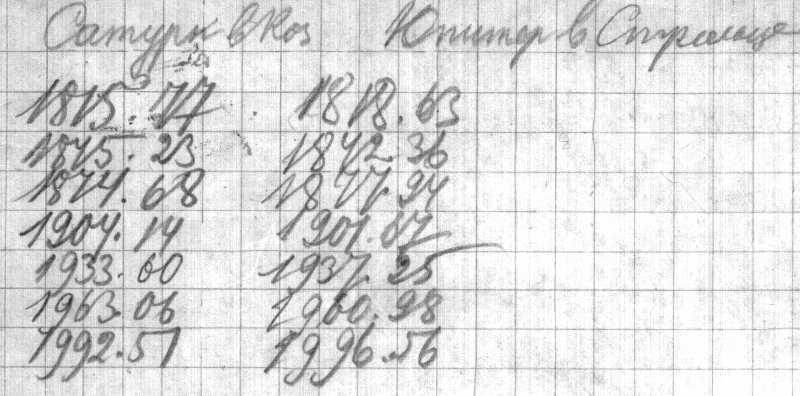 Сатурн в Коз Юпитер в Стрельце
1815.77 1818.63
1845.23 1842.36
1874.68 1877.94
1904.14 1901.67
1933.60 1937.25
1963.06 1960.98
1992.51 1996.56